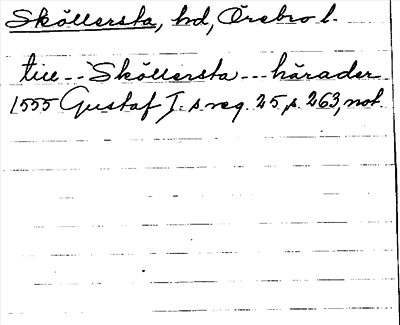 Sköllersta, hd, Örebro l.
till -- Sköllersta --- härader
1555 Gustaf I. s reg. 25, s. 263, not.